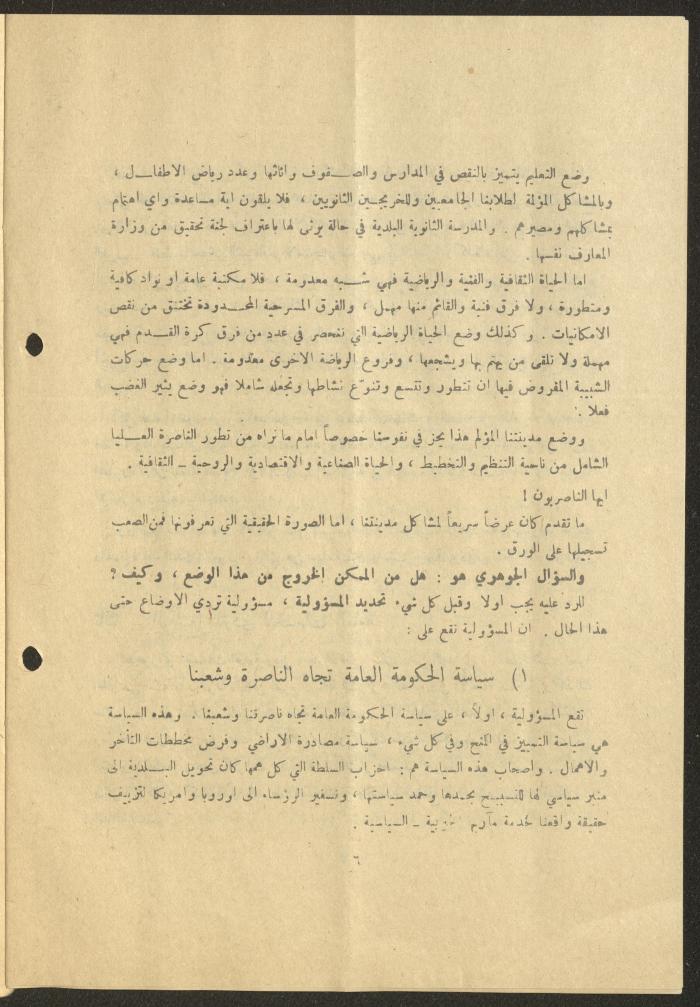 وضع التعليم يتميز بالنقص في المدارس والصفوف واثاثها وعدد رياض الاطفال ،
وبالمشاكل المؤلمة لطلابنا الجامعيين وللخريجين الثانويين ، فلا يلقون اية مساعدة واي اهتمام
بمشاكلهم ومصيرهم . والمدرسة الثانوية البلدية في حالة يرثى لها باعتراف لجنة تحقيق من وزارة
المعارف نفسها .
اما الحياة الثقافية والفنية والرياضية فهي شبه معدومة ، فلا مكتبة عامة او نواد كافية
ومتطورة ، ولا فرق فنية والقائم منها مهمل ، والفرق المسرحية المحدودة تختنق من نقص
الامكانيات . وكذلك وضع الحياة الرياضية التي تنحصر في عدد من فرق كرة القدم فهي
مهملة ولا تلقى من يهتم بها ويشجعها ، وفروع الرياضة الاخرى معدومة . اما وضع حركات
الشبيبة المفروض فيها ان تتطور وتتسع وتنوّع نشاطها وتجعله شاملا فهو وضع يثير الغضب
فعلا .
ووضع مدينتنا المؤلم هذا يحز في نفوسنا خصوصاً امام ما نراه من تطور الناصرة العليا
الشامل من ناحية التنظيم والتخطيط ، والحياة الصناعية والاقتصادية والروحية ـ الثقافية .
ايها الناصريون !
ما تقدم كان عرضاً سريعاً لمشاكل مدينتنا ، اما الصورة الحقيقية التي تعرفونها فمن الصعب
تسجيلها على الورق .
والسؤال الجوهري هو : هل من الممكن الخروج من هذا الوضع ، وكيف ؟
للرد عليه يجب اولا وقبل كل شيء تحديد المسؤولية ، مسؤولية تردي الاوضاع حتى
هذا الحال . ان المسؤولية تقع على :
١) سياسة الحكومة العامة تجاه الناصرة وشعبنا
تقع المسؤولية ، اولاً ، على سياسة الحكومة العامة تجاه ناصرتنا وشعبنا . وهذه السياسة
هي سياسة التمييز في المنح وفي كل شيء ، سياسة مصادرة الاراضي وفرض مخططات التأخر
والاهمال . واصحاب هذه السياسة هم : احزاب السلطة التي كل همها كان تحويل البلدية الى
منبر سياسي لها للتسبيح بحمدها وحمد سياستها ، وتسفير الرؤساء الى اوروبا وامريكا لتزييف
حقيقة واقعنا لخدمة مآربهم الحزبية ـ السياسية .
٦